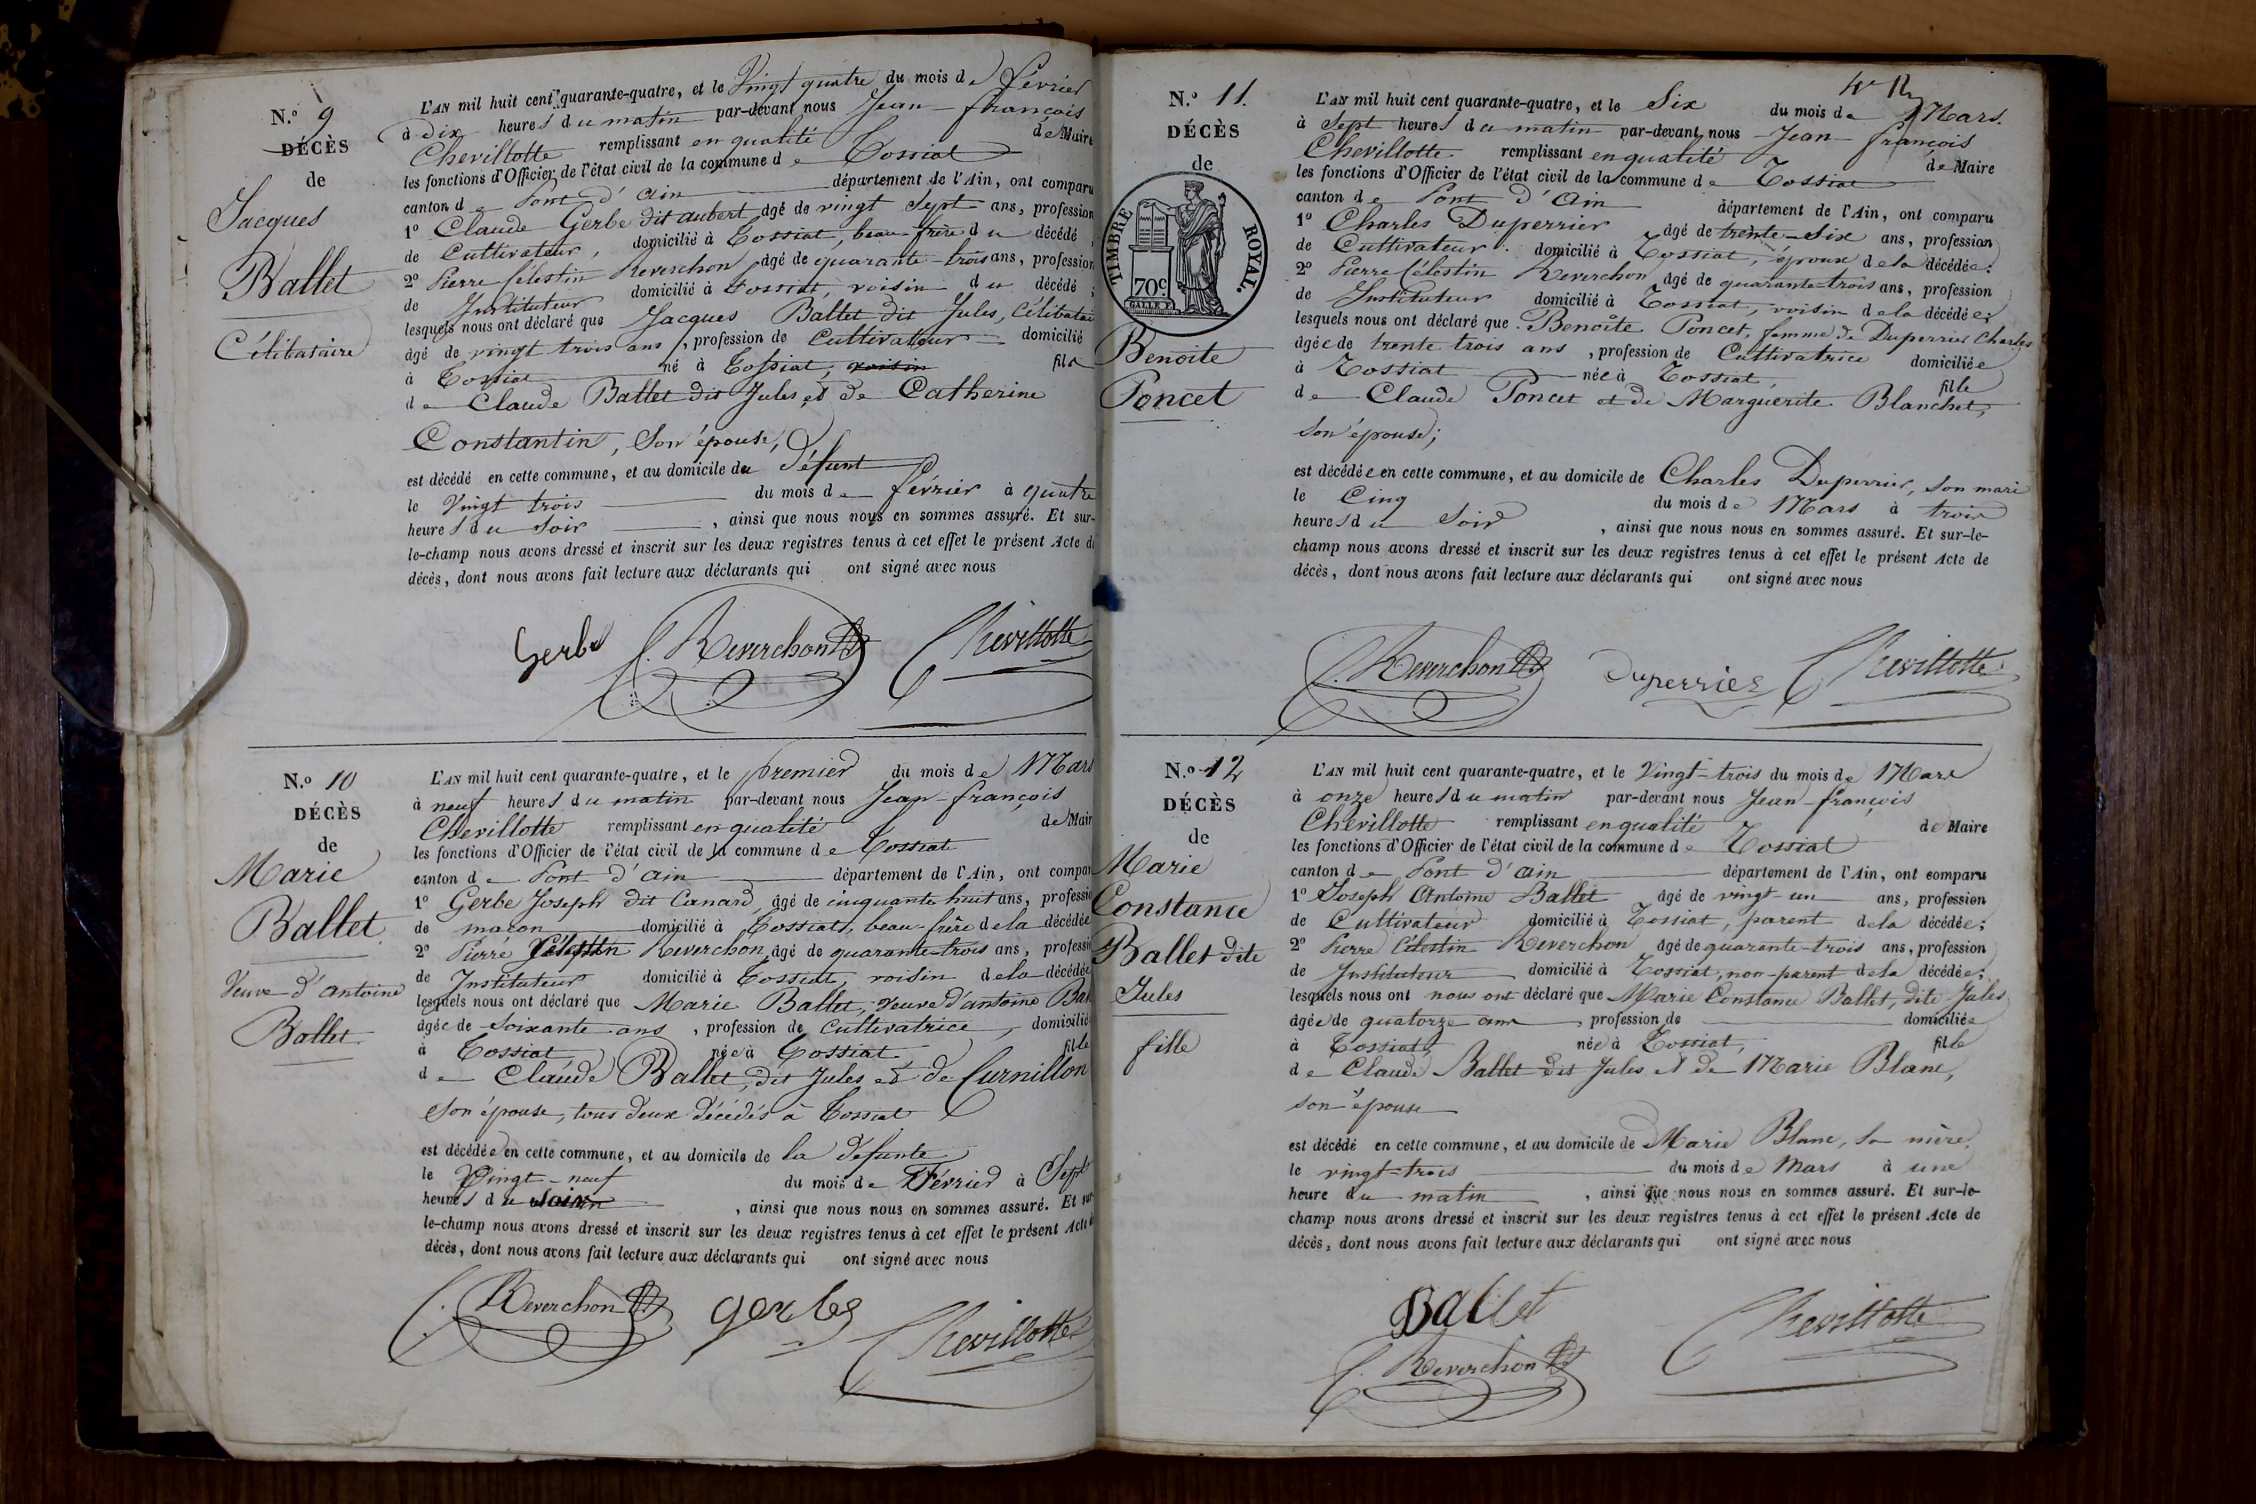 N.o 9
DÉCÈS
de
Jacques
Ballet
Célibataire
L'AN mil huit cent quarante-quatre, et le Vingt quatre du mois de Février
à dix heures du matin par-devant nous Jean-françois
Chevillotte remplissant en qualité de Maire
les fonctions d'Officier de l'état civil de la commune de Tossiat
canton de Pont d'ain département de l'Ain, ont comparu
1o Claude Gerbe dit aubert âgé de vingt sept ans, profession
de Cultivateur, domicilié à Tossiat, beau-frère du décédé
2o Pierre Célestin Reverchon âgé de quarante-trois ans, profession
de Instituteur domicilié à Tossiat, voisin du décédé ;
lesquels nous ont déclaré que Jacques Ballet dit Jules, Célibatai
âgé de vingt trois ans, profession de Cultivateur domicilié
à Tossiat né à Tossiat, voisin fils
de Claude Ballet dit Jules et de Catherine
Constantin, son épouse,
est décédé en cette commune, et au domicile du défunt
le Vingt trois du mois de février à quatre
heures du soir, ainsi que nous nous en sommes assuré. Et sur-
le-champ nous avons dressé et inscrit sur les deux registres tenus à cet effet le présent Acte de
décès, dont nous avons fait lecture aux déclarants qui ont signé avec nous
Gerbe C. Reverchon Chevillotte
N.o 10
DÉCÈS
de
Marie
Ballet
Veuve d'antoine
Ballet
L'AN mil huit cent quarante-quatre, et le premier du mois de Mars
à neuf heures du matin par-devant nous Jean-françois
Chevillotte remplissant en qualité de Mair
les fonctions d'Officier de l'état civil de la commune de Tossiat
canton de Pont d'ain département de l'Ain, ont compar
1o Gerbe Joseph dit Canard âgé de cinquante huit ans, professio
de maçon domicilié à Tossiat, beau-frère de la décédée
2o Pierre Célestin Reverchon âgé de quarante-trois ans, professio
de Instituteur domicilié à Tossiat, voisin de la décédée
lesquels nous ont déclaré que Marie Ballet, veuve d'antoine Bal
âgée de soixante ans, profession de Cultivatrice, domicilié
à Tossiat née à Tossiat fille
de Claude Ballet, dit Jules et de Curnillon
son épouse, tous deux décédés à Tossiat
est décédée en cette commune, et au domicile de la défunte
le Vingt-neuf du mois de Février à Sept
heures du , ainsi que nous nous en sommes assuré. Et sur
le-champ nous avons dressé et inscrit sur les deux registres tenus à cet effet le présent Acte d
décès, dont nous avons fait lecture aux déclarants qui ont signé avec nous
C. Reverchon gerbe Chevillotte
N.o 11.
DÉCÈS
de
TIMBRE ROYAL.
70c
GALLE F.
Benoite
Poncet
L'AN mil huit cent quarante-quatre, et le Six du mois de Mars.
à Sept heures du matin par-devant nous Jean-françois
Chevillotte remplissant en qualité de Maire
les fonctions d'Officier de l'état civil de la commune de Tossiat
canton de Pont d'ain département de l'Ain, ont comparu
1o Charles Duperrier âgé de trente-six ans, profession
de Cultivateur. domicilié à Tossiat, époux de la décédée ;
2o Pierre Célestin Reverchon âgé de quarante-trois ans, profession
de Instituteur domicilié à Tossiat, voisin de la décédée ;
lesquels nous ont déclaré que Benoite Poncet, femme de Duperrier Charles
âgée de trente trois ans, profession de Cultivatrice domiciliée
à Tossiat née à Tossiat, fille
de Claude Poncet et de Marguerite Blanchet,
son épouse ;
est décédée en cette commune, et au domicile de Charles Duperrier, son mari
le Cinq du mois de Mars à trois
heures du Soir, ainsi que nous nous en sommes assuré. Et sur-le-
champ nous avons dressé et inscrit sur les deux registres tenus à cet effet le présent Acte de
décès, dont nous avons fait lecture aux déclarants qui ont signé avec nous
C. Reverchon duperrier Chevillotte
N.o 12
DÉCÈS
de
Marie
Constance
Ballet dite
Jules
fille
L'AN mil huit cent quarante-quatre, et le Vingt-trois du mois de Mars
à onze heures du matin par-devant nous Jean-françois
Chevillotte remplissant en qualité de Maire
les fonctions d'Officier de l'état civil de la commune de Tossiat
canton de Pont d'ain département de l'Ain, ont comparu
1o Joseph Antoine Ballet âgé de vingt-un ans, profession
de Cultivateur domicilié à Tossiat, parent de la décédée ;
2o Pierre Célestin Reverchon âgé de quarante-trois ans, profession
de Instituteur domicilié à Tossiat, non-parent de la décédée ;
lesquels nous ont nous ont déclaré que Marie Constance Ballet, dite Jules,
âgée de quatorze ans, profession de domiciliée
à Tossiat, née à Tossiat, fille
de Claude Ballet dit Jules et de Marie Blanc,
son épouse
est décédé en cette commune, et au domicile de Marie Blanc, sa mère,
le vingt-trois du mois de Mars à une
heure du matin, ainsi que nous nous en sommes assuré. Et sur-le-
champ nous avons dressé et inscrit sur les deux registres tenus à cet effet le présent Acte de
décès, dont nous avons fait lecture aux déclarants qui ont signé avec nous
Ballet Chevillotte
C. Reverchon